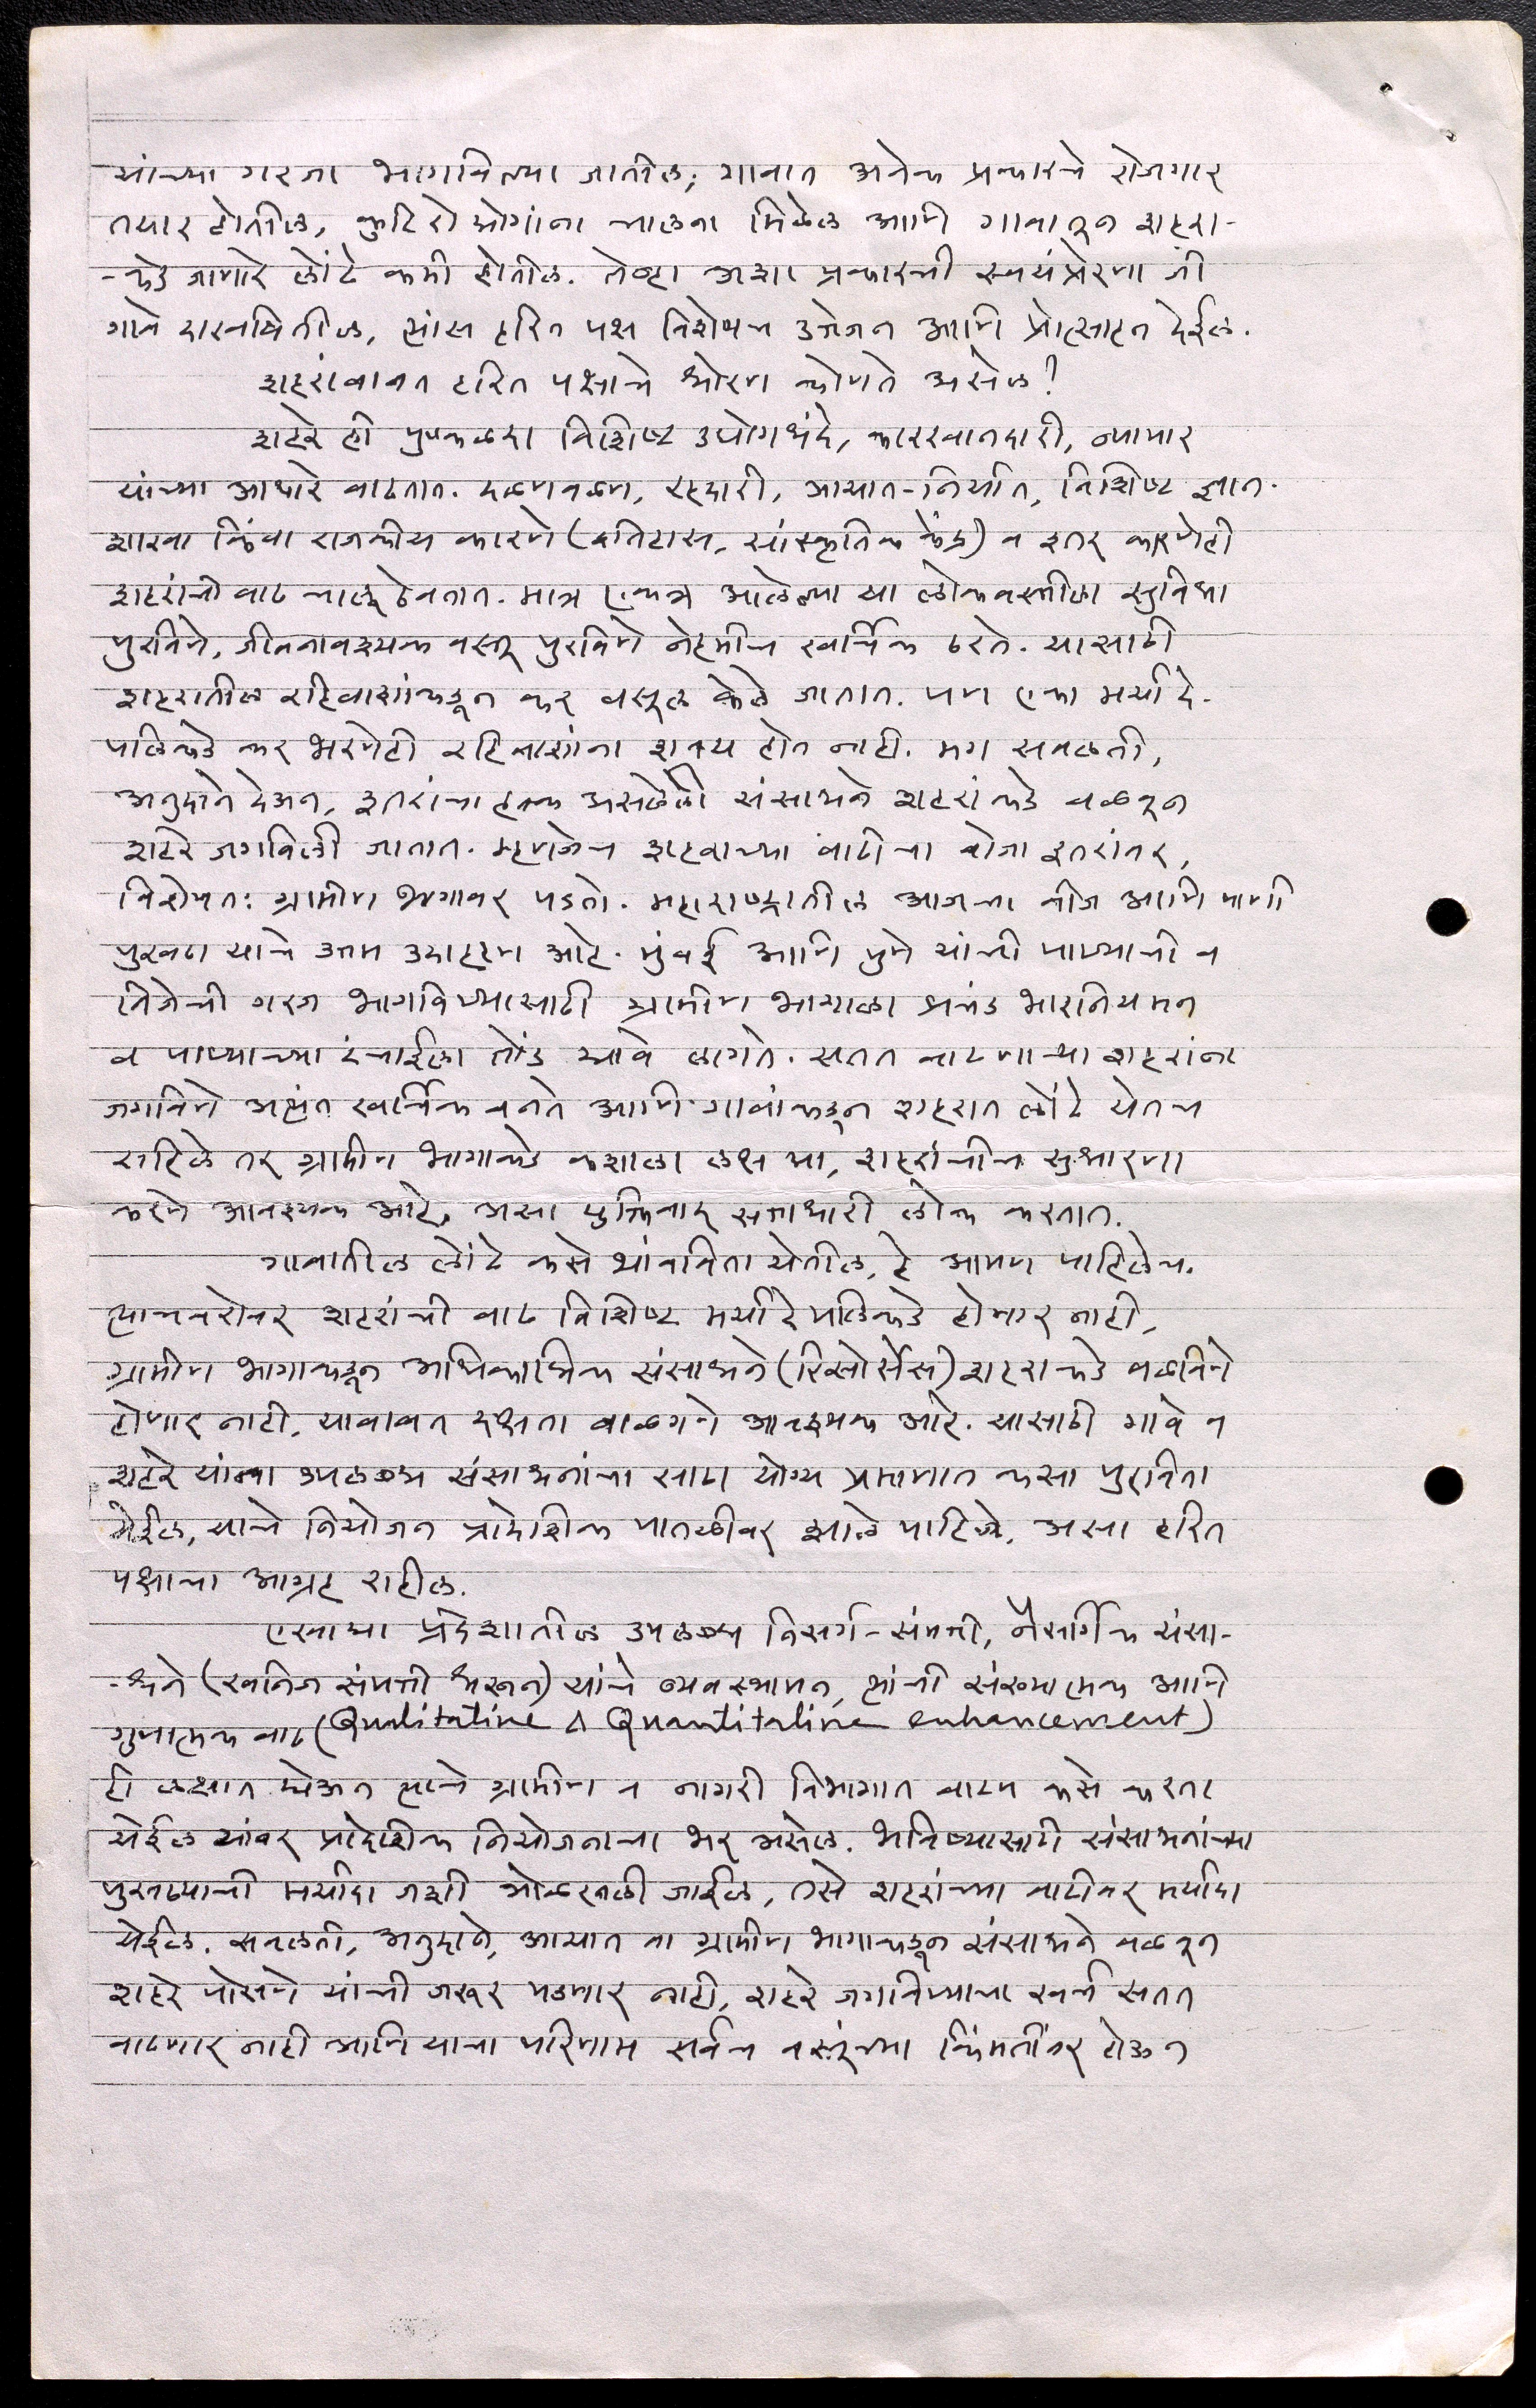 यांच्या गरजा भागविल्या जातील; गावात अनेक प्रकारचे रोजगार
तयार होतील, कुटिरोद्योगांना चालना मिळेल आणि गावातून शहरा-
-कडे जाणारे लोंढे कमी होतील. तेव्हा अशा प्रकारची स्वयंप्रेरणा जी
गावे दाखवितील, त्यांस हरित पक्ष विशेषच उत्तेजन आणि प्रोत्साहन देईल.
शहरांबाबत हरित पक्षाचे धोरण कोणते असेल?
शहरे ही पुष्कळदा विशिष्ट उद्योगधंदे, कारखानदारी, व्यापार
यांच्या आधारे वाढतात. दळणवळण, रहदारी, आयात-निर्यात, विशिष्ट ज्ञान-
शाखा किंवा राजकीय कारणे (इतिहास, सांस्कृतिक केंद्र) व इतर कारणेही
शहरांची वाढ चालू ठेवतात. मात्र एकत्र आलेल्या या लोकवस्तीला सुविधा
पुरविणे, जीवनावश्यक वस्तू पुरविणे नेहमीच खर्चिक ठरते. यासाठी
शहरातील रहिवाशांकडून कर वसूल केले जातात. पण एका मर्यादे-
पलिकडे कर भरणेही रहिवाशांना शक्य होत नाही. मग सवलती,
अनुदाने देऊन, इतरांचा हक्क असलेली संसाधने शहरांकडे वळवून
शहरे जगविली जातात. म्हणजेच शहराच्या वाढीचा बोजा इतरांवर,
विशेषतः ग्रामीण भागावर पडतो. महाराष्ट्रातील आजचा वीज आणि पाणी
पुरवठा याचे उत्तम उदाहरण आहे. मुंबई आणि पुणे यांची पाण्याची व
विजेची गरज भागविण्यासाठी ग्रामीण भागाला प्रचंड भारनियमन
व पाण्याच्या टंचाईला तोंड द्यावे लागते. सतत वाढणाऱ्या शहरांना
जगविणे अत्यंत खर्चिक बनते आणि गावांकडून शहरात लोंढे येतच
राहिले तर ग्रामीण भागाकडे कशाला लक्ष द्या, शहरांचीच सुधारणा
करणे आवश्यक आहे, असा युक्तिवाद सत्ताधारी लोक करतात.
गावातील लोंढे कसे थांबविता येतील, हे आपण पाहिलेच.
त्याचबरोबर शहरांची वाढ विशिष्ट मर्यादेपलिकडे होणार नाही,
ग्रामीण भागाकडून अधिकाधिक संसाधने (रिसोर्सेस) शहराकडे वळविणे
होणार नाही, याबाबत दक्षता बाळगणे आवश्यक आहे. यासाठी गावे व
शहरे यांना उपलब्ध संसाधनांचा साठा योग्य प्रमाणात कसा पुरविता
येईल, याचे नियोजन प्रादेशिक पातळीवर झाले पाहिजे, असा हरित
पक्षाचा आग्रह राहील.
एखाद्या प्रदेशातील उपलब्ध निसर्ग-संपत्ती, नैसर्गिक संसा-
-धने (खनिज संपत्ती धरून) यांचे व्यवस्थापन, त्यांची संख्यात्मक आणि
गुणात्मक वाढ (Qualitative & Quantitative enhancement)
ही लक्षात घेऊन त्याचे ग्रामीण व नागरी विभागात वाटप कसे करता
येईल यांवर प्रादेशिक नियोजनाचा भर असेल. भविष्यासाठी संसाधनांच्या
पुरवठ्याची मर्यादा जशी ओळखली जाईल, तसे शहरांच्या वाढीवर मर्यादा
येईल. सवलती, अनुदाने, आयात वा ग्रामीण भागाकडून संसाधने वळवून
शहरे पोसणे यांची जरूर पडणार नाही, शहरे जगविण्याचा खर्च सतत
वाढणार नाही आणि याचा परिणाम सर्वच वस्तूंच्या किंमतींवर होऊन